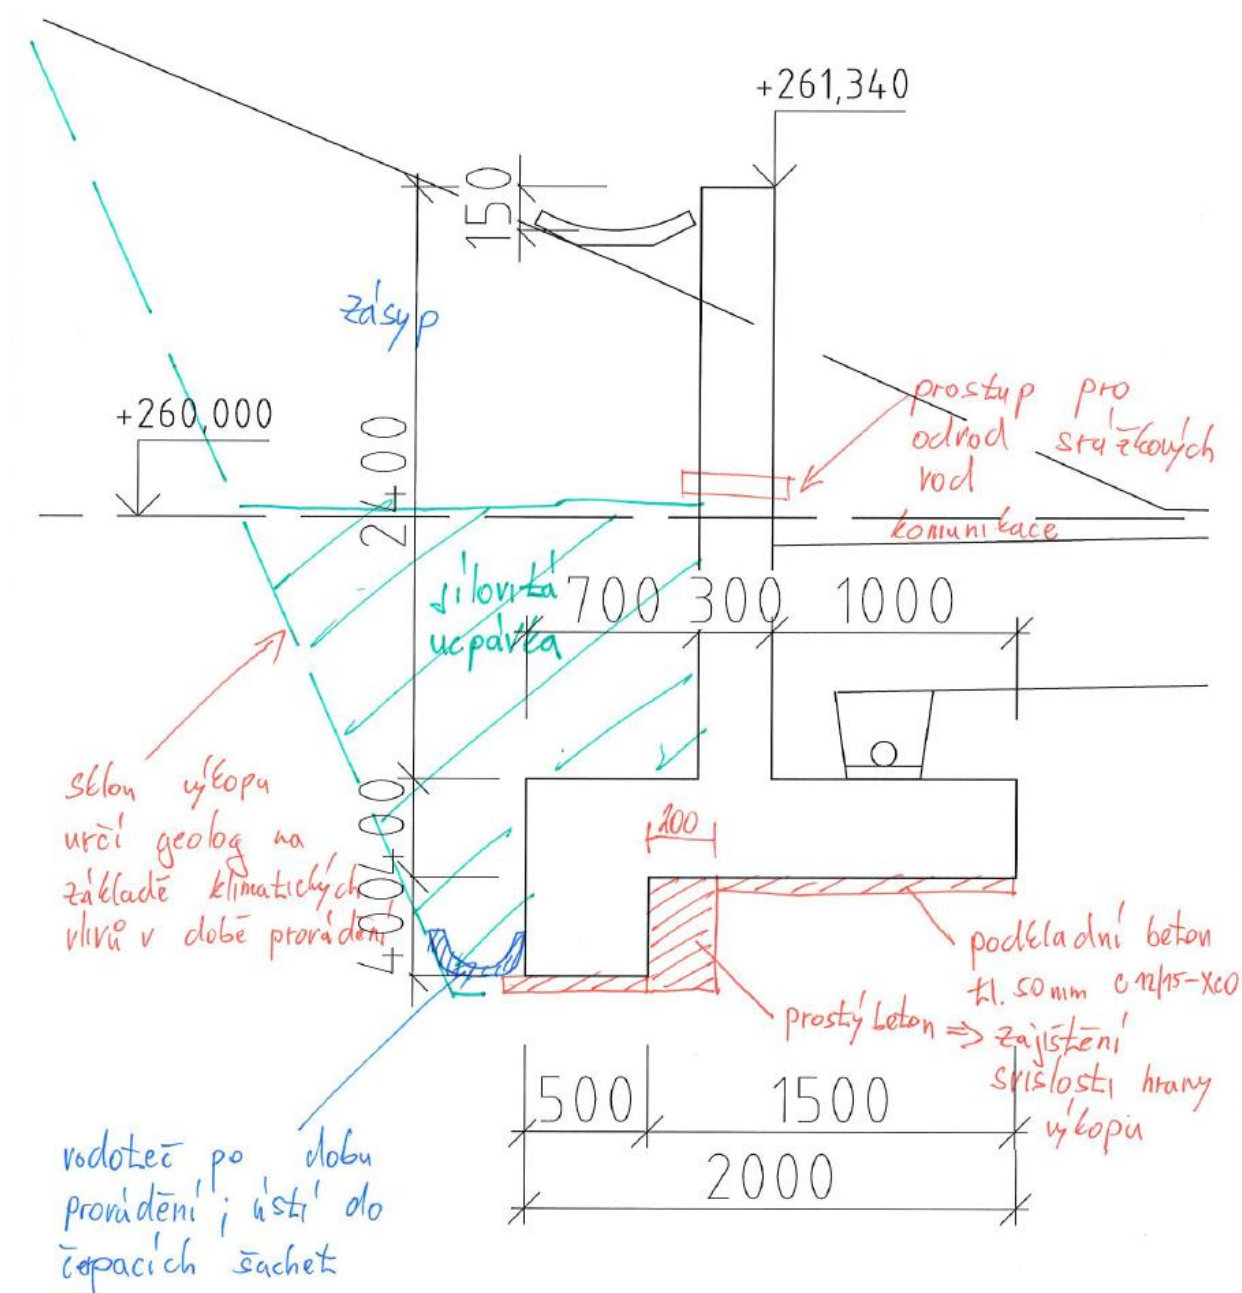 +261,340
150
zásyp
+260,000
2400
prostup pro
odvod srážkových
vod
komunikace
jílovitá
ucpávka
700 300 1000
sklon výkopu
určí geolog na
základě klimatických
vlivů v době provádění
400
400
200
podkladní beton
tl. 50mm C12/15-XC0
prostý beton => zajištění
svislosti hrany
výkopu
500 1500
2000
vodoteč po dobu
provádění; ústí do
čerpacích šachet